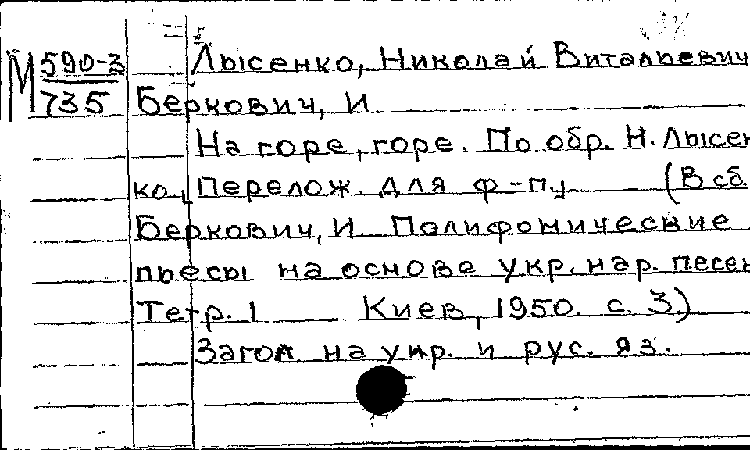 М 590-3
735
Лысенко, Николай Витальевич
Беркович, И
На горе, горе. По обр. Н. Лысен
ко, Перелож. для ф-пу (В сб.
Беркович, И Полифонические
пьесы на основе укр. нар. песен
Тетр. 1 Киев, 1950. с. 3.)
Загол на укр. и рус. яз.